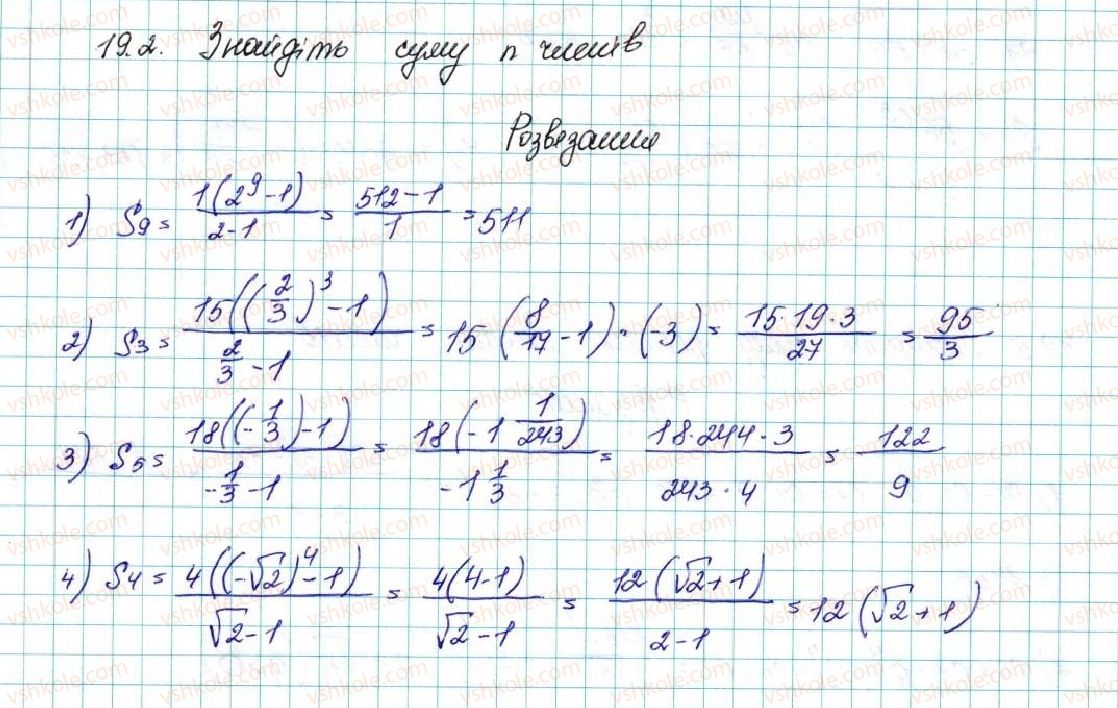 19.2. Знайдіть суму n членів
Розвезання
1) S₉ = 1(2⁹-1)/(2-1) = (512-1)/1 = 511
2) S₃ = 15((2/3)³-1)/(2/3-1) = 15(8/17-1)·(-3) = 15·19·3/27 = 95/3
3) S₅ = 18((-1/3)-1)/(-1/3-1) = 18(-1 1/243)/(-1 1/3) = 18·244·3/(243·4) = 122/9
4) S₄ = 4((-√2)⁴-1)/(√2-1) = 4(4-1)/(√2-1) = 12(√2+1)/(2-1) = 12(√2+1)
vshkole.com